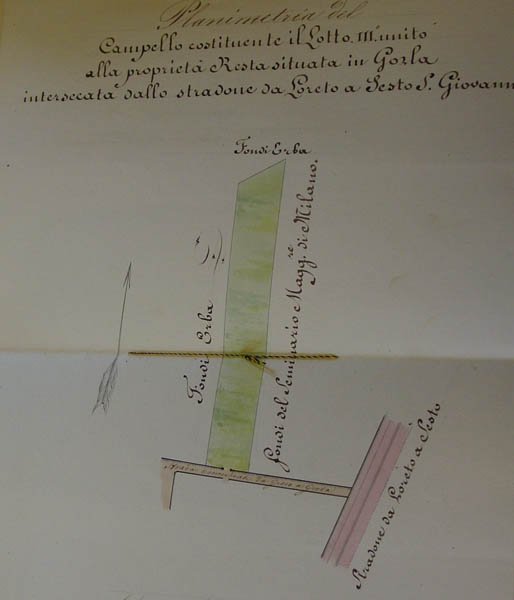 Planimetria del
Campello costituente il Lotto III. unito
alla proprietà Resta situata in Gorla
intersecata dallo stradone da Loreto a Sesto S. Giovann
Fondi Erba
Fondi Erba
Fondi del Seminario Magg.re di Milano.
Strada comunale da a
Stradone da Loreto a Sesto